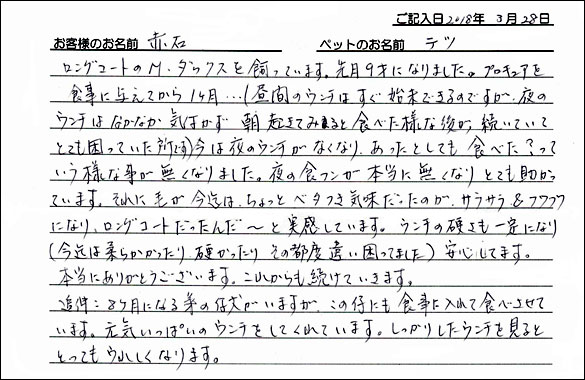 ご記入日2018年 3月28日
お客様のお名前 赤石 ペットのお名前 テツ
ロングコートのM.ダックスを飼っています。先月9才になりました。プロキュアを
食事に与えてから1ヶ月…(昼間のウンチはすぐ始末できるのですが、夜の
ウンチはなかなか気ずかず 朝起きてみると食べた様な後が続いていて
とても困っていた所です)今は夜のウンチがなくなり、あったとしても食べた?って
いう様な事が無くなりました。夜の食フンが本当に無くなりとても助かっ
ています。それに毛が今迄は、ちょっとベタつき気味だったのが、サラサラ&フワフワ
になり、ロングコートだったんだ～と実感しています。ウンチの硬さも一定になり
(今迄は柔らかかったり 硬かったり その都度違い困ってました)安心してます。
本当にありがとうございます。これからも続けていきます。
追伸:8ヶ月になる弟の仔犬がいますが、この仔にも食事に入れて食べさせて
います。元気いっぱいのウンチをしてくれています。しっかりしたウンチを見ると
とってもうれしくなります。